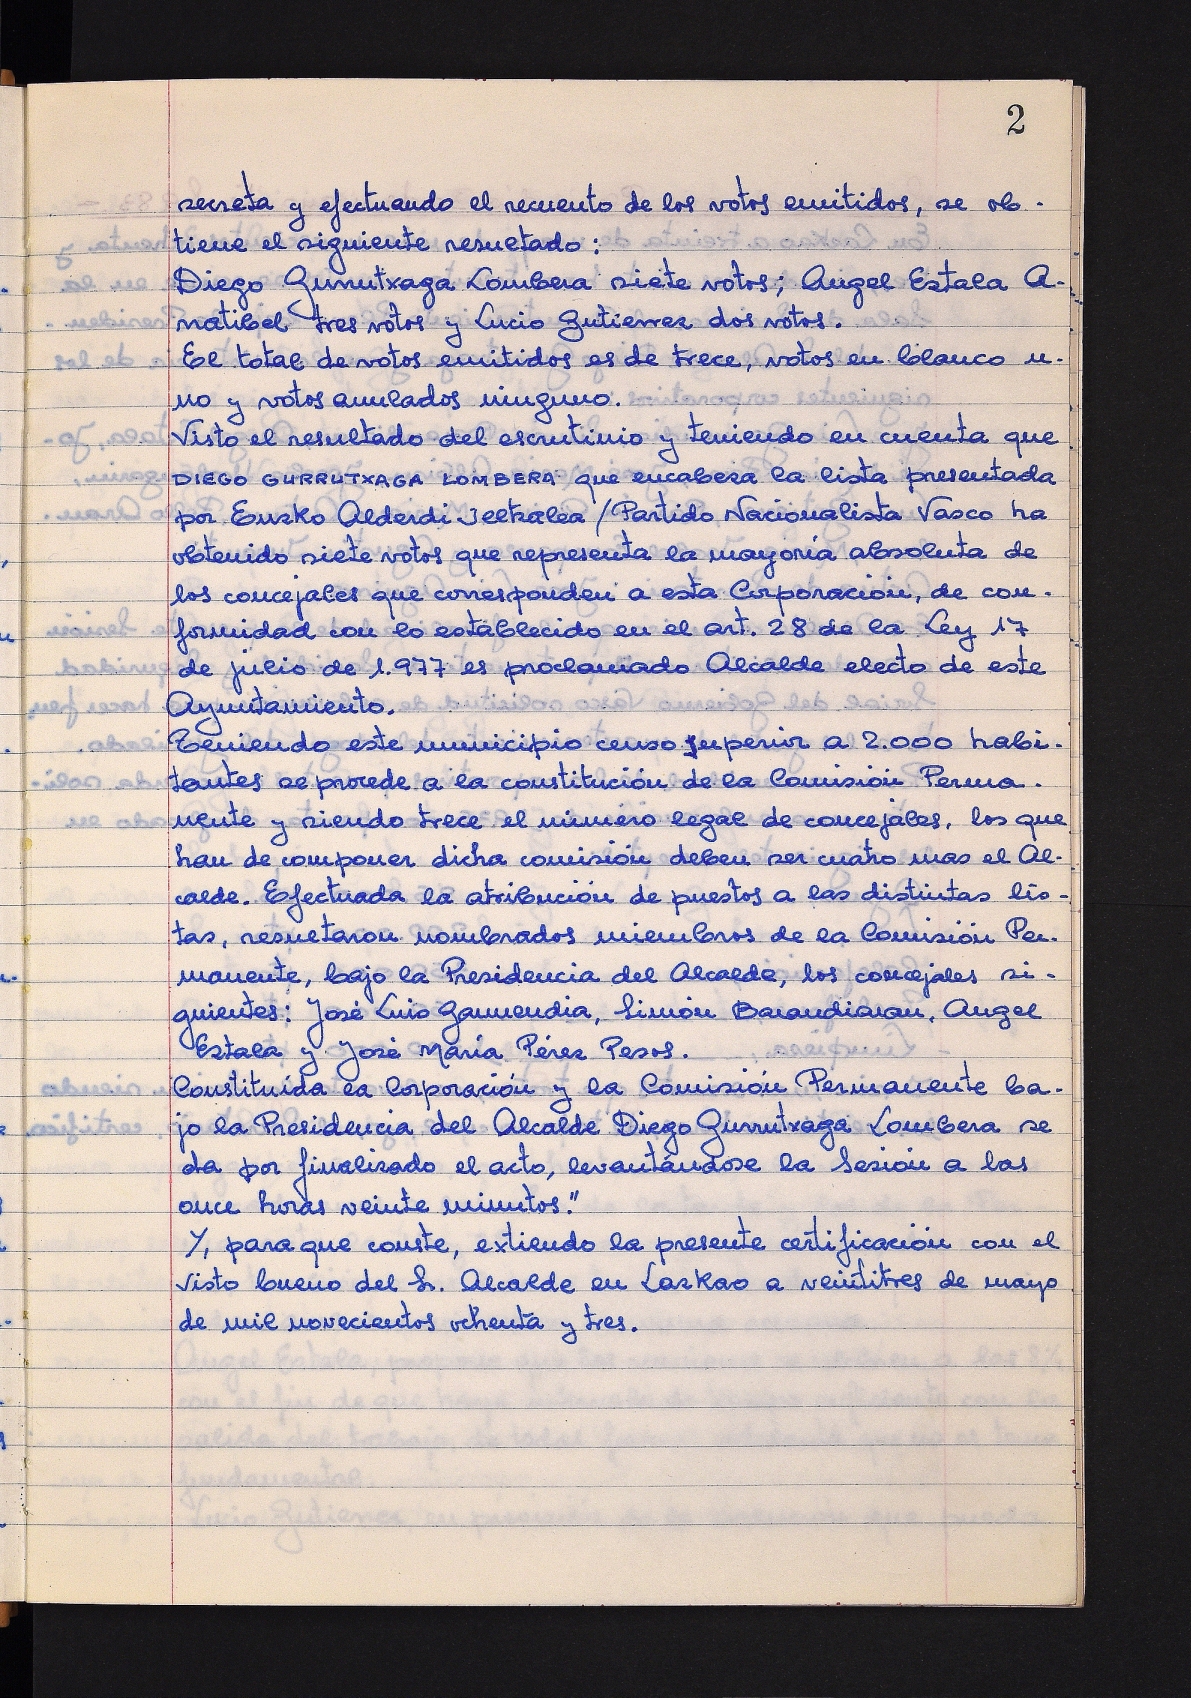 2
secreta y efectuando el recuento de los votos emitidos, se ob-
tiene el siguiente resultado:
Diego Gurrutxaga Lombera siete votos; Angel Estala A-
rratibel tres votos y Lucio Gutierrez dos votos.
El total de votos emitidos es de trece, votos en blanco u-
no y votos anulados ninguno.
Visto el resultado del escrutinio y teniendo en cuenta que
DIEGO GURRUTXAGA LOMBERA que encabeza la lista presentada
por Euzko Alderdi Jeltzalea / Partido Nacionalista Vasco ha
obtenido siete votos que representa la mayoría absoluta de
los concejales que corresponden a esta Corporación, de con-
formidad con lo establecido en el art. 28 de la Ley 17
de julio de 1.977 es proclamado Alcalde electo de este
Ayuntamiento.
Teniendo este municipio censo superior a 2.000 habi-
tantes se procede a la constitución de la Comisión Perma-
nente y siendo trece el número legal de concejales, los que
han de componer dicha comisión deben ser cuatro mas el Al-
calde. Efectuada la atribución de puestos a las distintas lis-
tas, resultaron nombrados miembros de la Comisión Per-
manente, bajo la Presidencia del Alcalde, los concejales si-
guientes: José Luis Garmendia, Simón Barandiaran, Angel
Estala y José María Pérez Pesos.
Constituída la Corporación y la Comisión Permanente ba-
jo la Presidencia del Alcalde Diego Gurrutxaga Lombera se
da por finalizado el acto, levantándose la Sesión a las
once horas veinte minutos."
Y, para que conste, extiendo la presente certificación con el
visto bueno del Sr. Alcalde en Lazkao a veintitres de mayo
de mil novecientos ochenta y tres.